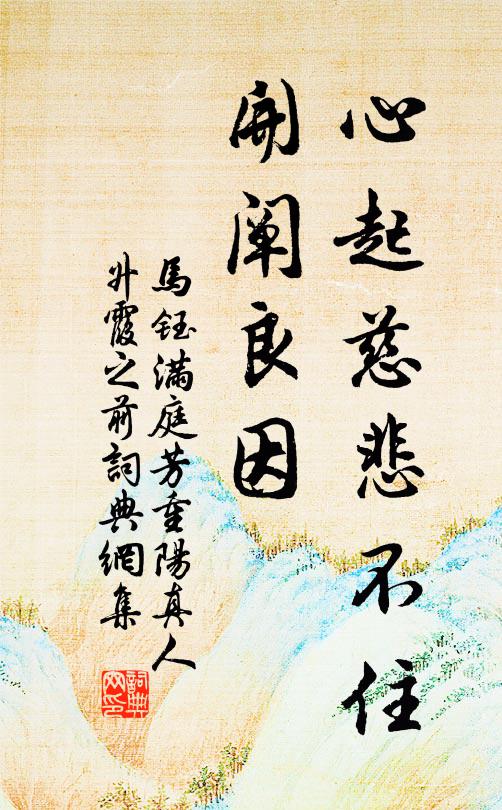 心起慈悲不住
開闡良因
馬鈺滿庭芳重陽真人
升霞之前詞典網集
詞典
网印